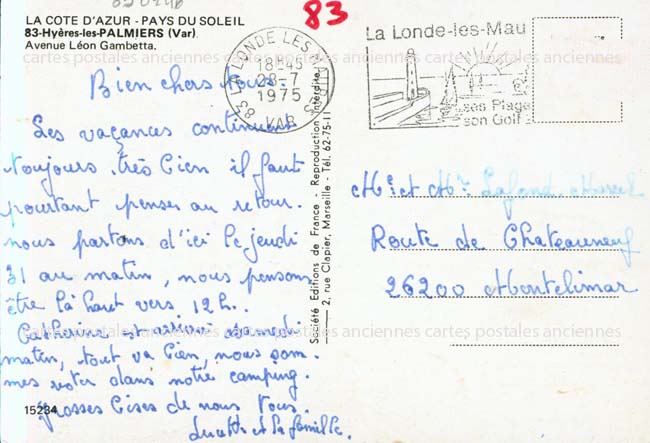 LA COTE D'AZUR - PAYS DU SOLEIL
83-Hyères-les-PALMIERS (Var)
Avenue Léon Gambetta.
83
83 LA LONDE LES MAURES
18H45
28-7
1975
VAR
La Londe-les-Mau
ses Plage
son Golf
cartes postales anciennes cartes postales anciennes cartes postales anciennes
Bien chers tous.
Les vacances continuent
toujours très bien il faut
pourtant penser au retour.
nous partons d'ici le jeudi
31 au matin, nous pensons
être là haut vers 12h.
Catherine est arrivée samedi
matin, tout va bien, nous som-
mes rester dans notre camping.
grosses bises de nous tous.
et la famille.
15234
Société Editions de France - Reproduction interdite
2, rue Clapier, Marseille - Tél. 62-75-11
Mr et Mme Lafond Marcel
Route de Chateauneuf
26200 Montelimar
cartes postales anciennes cartes postales anciennes cartes postales anciennes